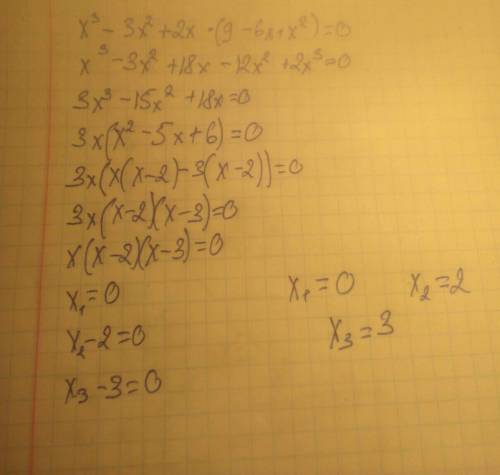 x³ - 3x² + 2x · (9 - 6x + x²) = 0
x³ - 3x² + 18x - 12x² + 2x³ = 0
3x³ - 15x² + 18x = 0
3x(x² - 5x + 6) = 0
3x(x(x - 2) - 3(x - 2)) = 0
3x(x - 2)(x - 3) = 0
x(x - 2)(x - 3) = 0
x₁ = 0 x₁ = 0 x₂ = 2
x₂ - 2 = 0 x₃ = 3
x₃ - 3 = 0